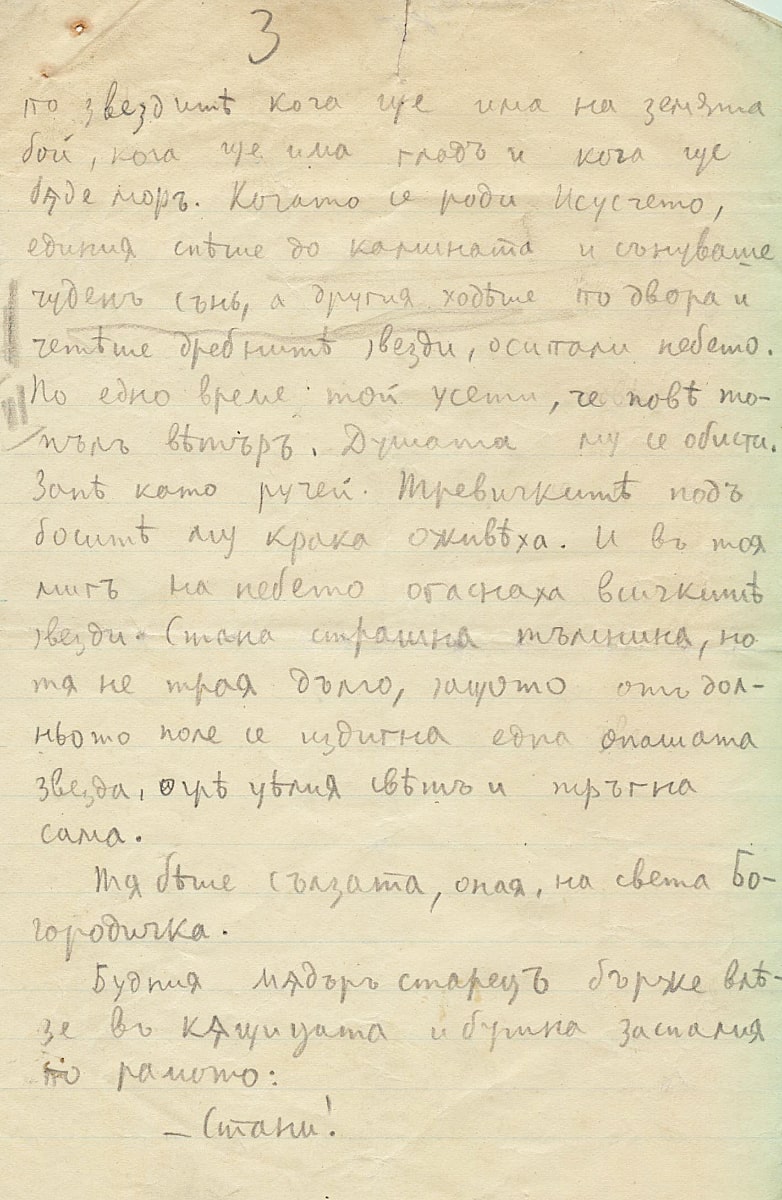 3
по звездитѣ кога ще има на земята
бой, кога ще има гладъ и кога ще
бѫде моръ. Когато се роди Исусчето,
единия спѣше до камината и сънуваше
чуденъ сънь, а другия ходѣше по двора и
четѣше дребнитѣ звезди, осипали небето.
По едно време той усети, че повѣ то-
пълъ вѣтъръ. Душата му се обисти.
Запѣ като ручей. Тревичкитѣ подъ
боситѣ му крака оживѣха. И въ тоя
мигъ на небето огаснаха всичкитѣ
звезди. Стана страшна тъмнина, но
тя не трая дълго, защото отъ дол-
ньото поле се издигна една опашата
звезда, огрѣ цѣлия свѣтъ и тръгна
сама.
Тя бѣше сълзата, оная, на света Бо-
городичка.
Будния мѫдъръ старецъ бърже влѣ-
зе въ кѫщицата и бутна заспалия
по рамото:
– Стани!